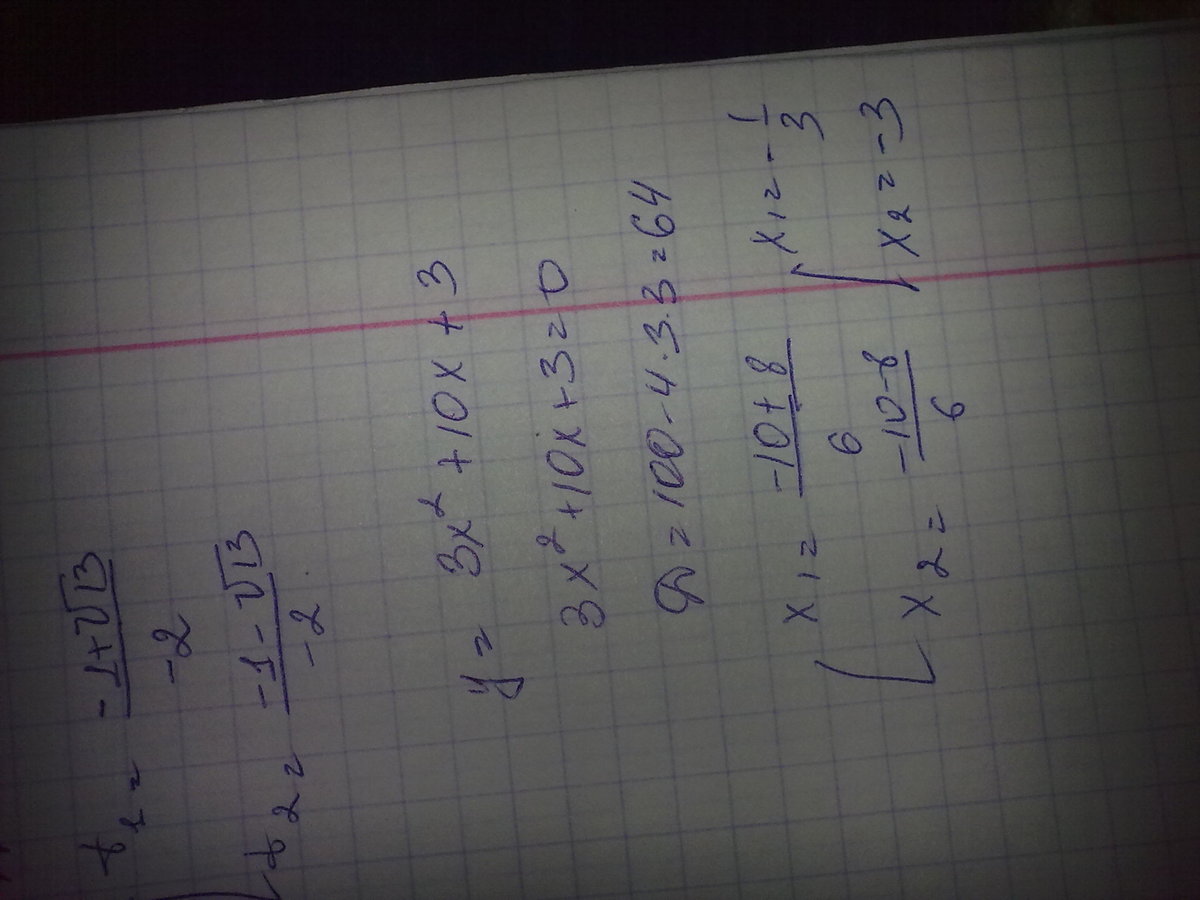 t₁ = (-1+√13)/(-2)
t₂ = (-1-√13)/(-2)
y = 3x² + 10x + 3
3x² + 10x + 3 = 0
D = 100 - 4·3·3 = 64
[ x₁ = (-10+8)/6 [ x₁ = -1/3
x₂ = (-10-8)/6 x₂ = -3